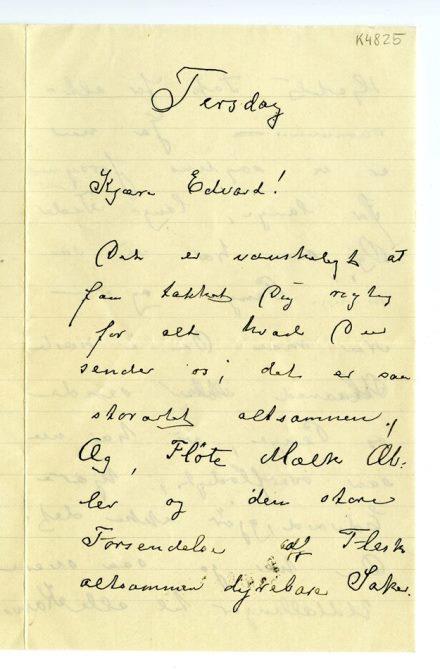 K4825
Tirsdag
Kjære Edvard!
Det er vanskeligt at
faa takket Dig rigtig
for alt hvad Du
sender os; det er saa
storartet altsammen!
Æg, Fløte Mælk Æb-
ler og den store
Forsendelse af Flesk
altsammen dyrebare Saker.